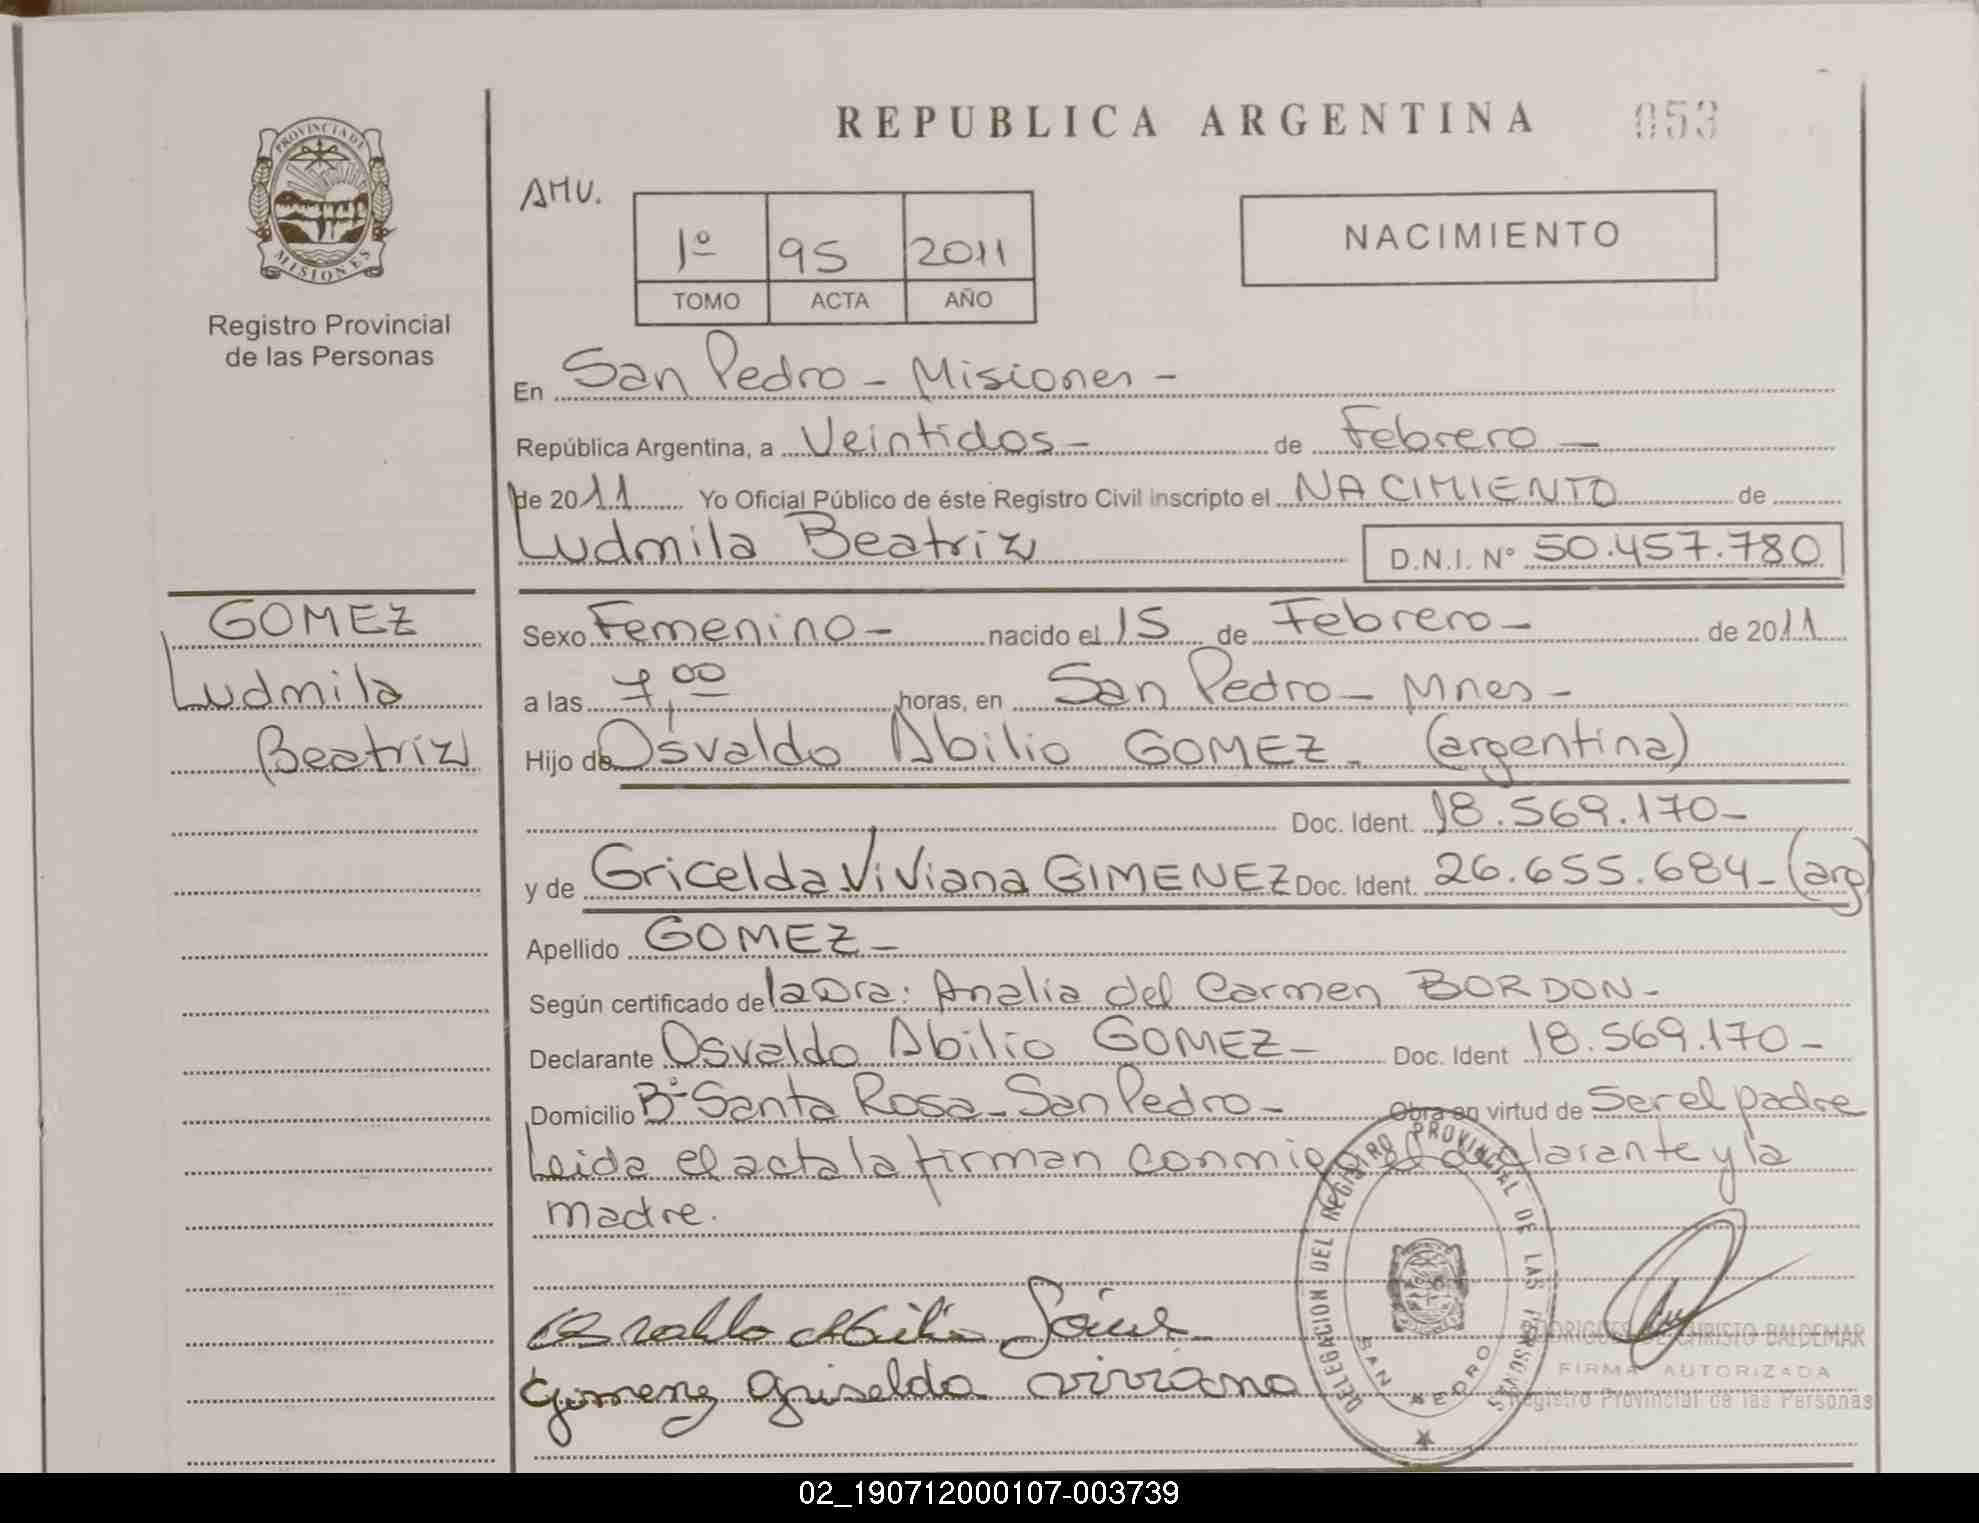 REPUBLICA ARGENTINA 053
PROVINCIA DE
MISIONES
Registro Provincial
de las Personas
AMU.
1º 95 2011
TOMO ACTA AÑO
NACIMIENTO
En San Pedro - Misiones -
República Argentina, a Veintidos - de Febrero -
de 2011 Yo Oficial Público de éste Registro Civil inscripto el NACIMIENTO de
Ludmila Beatriz D.N.I. Nº 50.457.780
GOMEZ
Ludmila
Beatriz
Sexo Femenino - nacido el 15 de Febrero - de 2011
a las 7,00 horas, en San Pedro - Mnes -
Hijo de Osvaldo Abilio GOMEZ - (argentina)
Doc. Ident. 18.569.170 -
y de Gricelda Viviana GIMENEZ Doc. Ident. 26.655.684 - (arg)
Apellido GOMEZ -
Según certificado de la Dra: Analia del Carmen BORDON -
Declarante Osvaldo Abilio GOMEZ - Doc. Ident 18.569.170 -
Domicilio Bº Santa Rosa - San Pedro - Obra en virtud de Ser el padre
Leida el acta la firman conmigo el declarante y la
madre.
Gimenez Griselda viviana
DELEGACION DEL REGISTRO PROVINCIAL DE LAS PERSONAS
SAN PEDRO
RODRIGUES DE CHRISTO BALDEMAR
FIRMA AUTORIZADA
Registro Provincial de las Personas
02_190712000107-003739